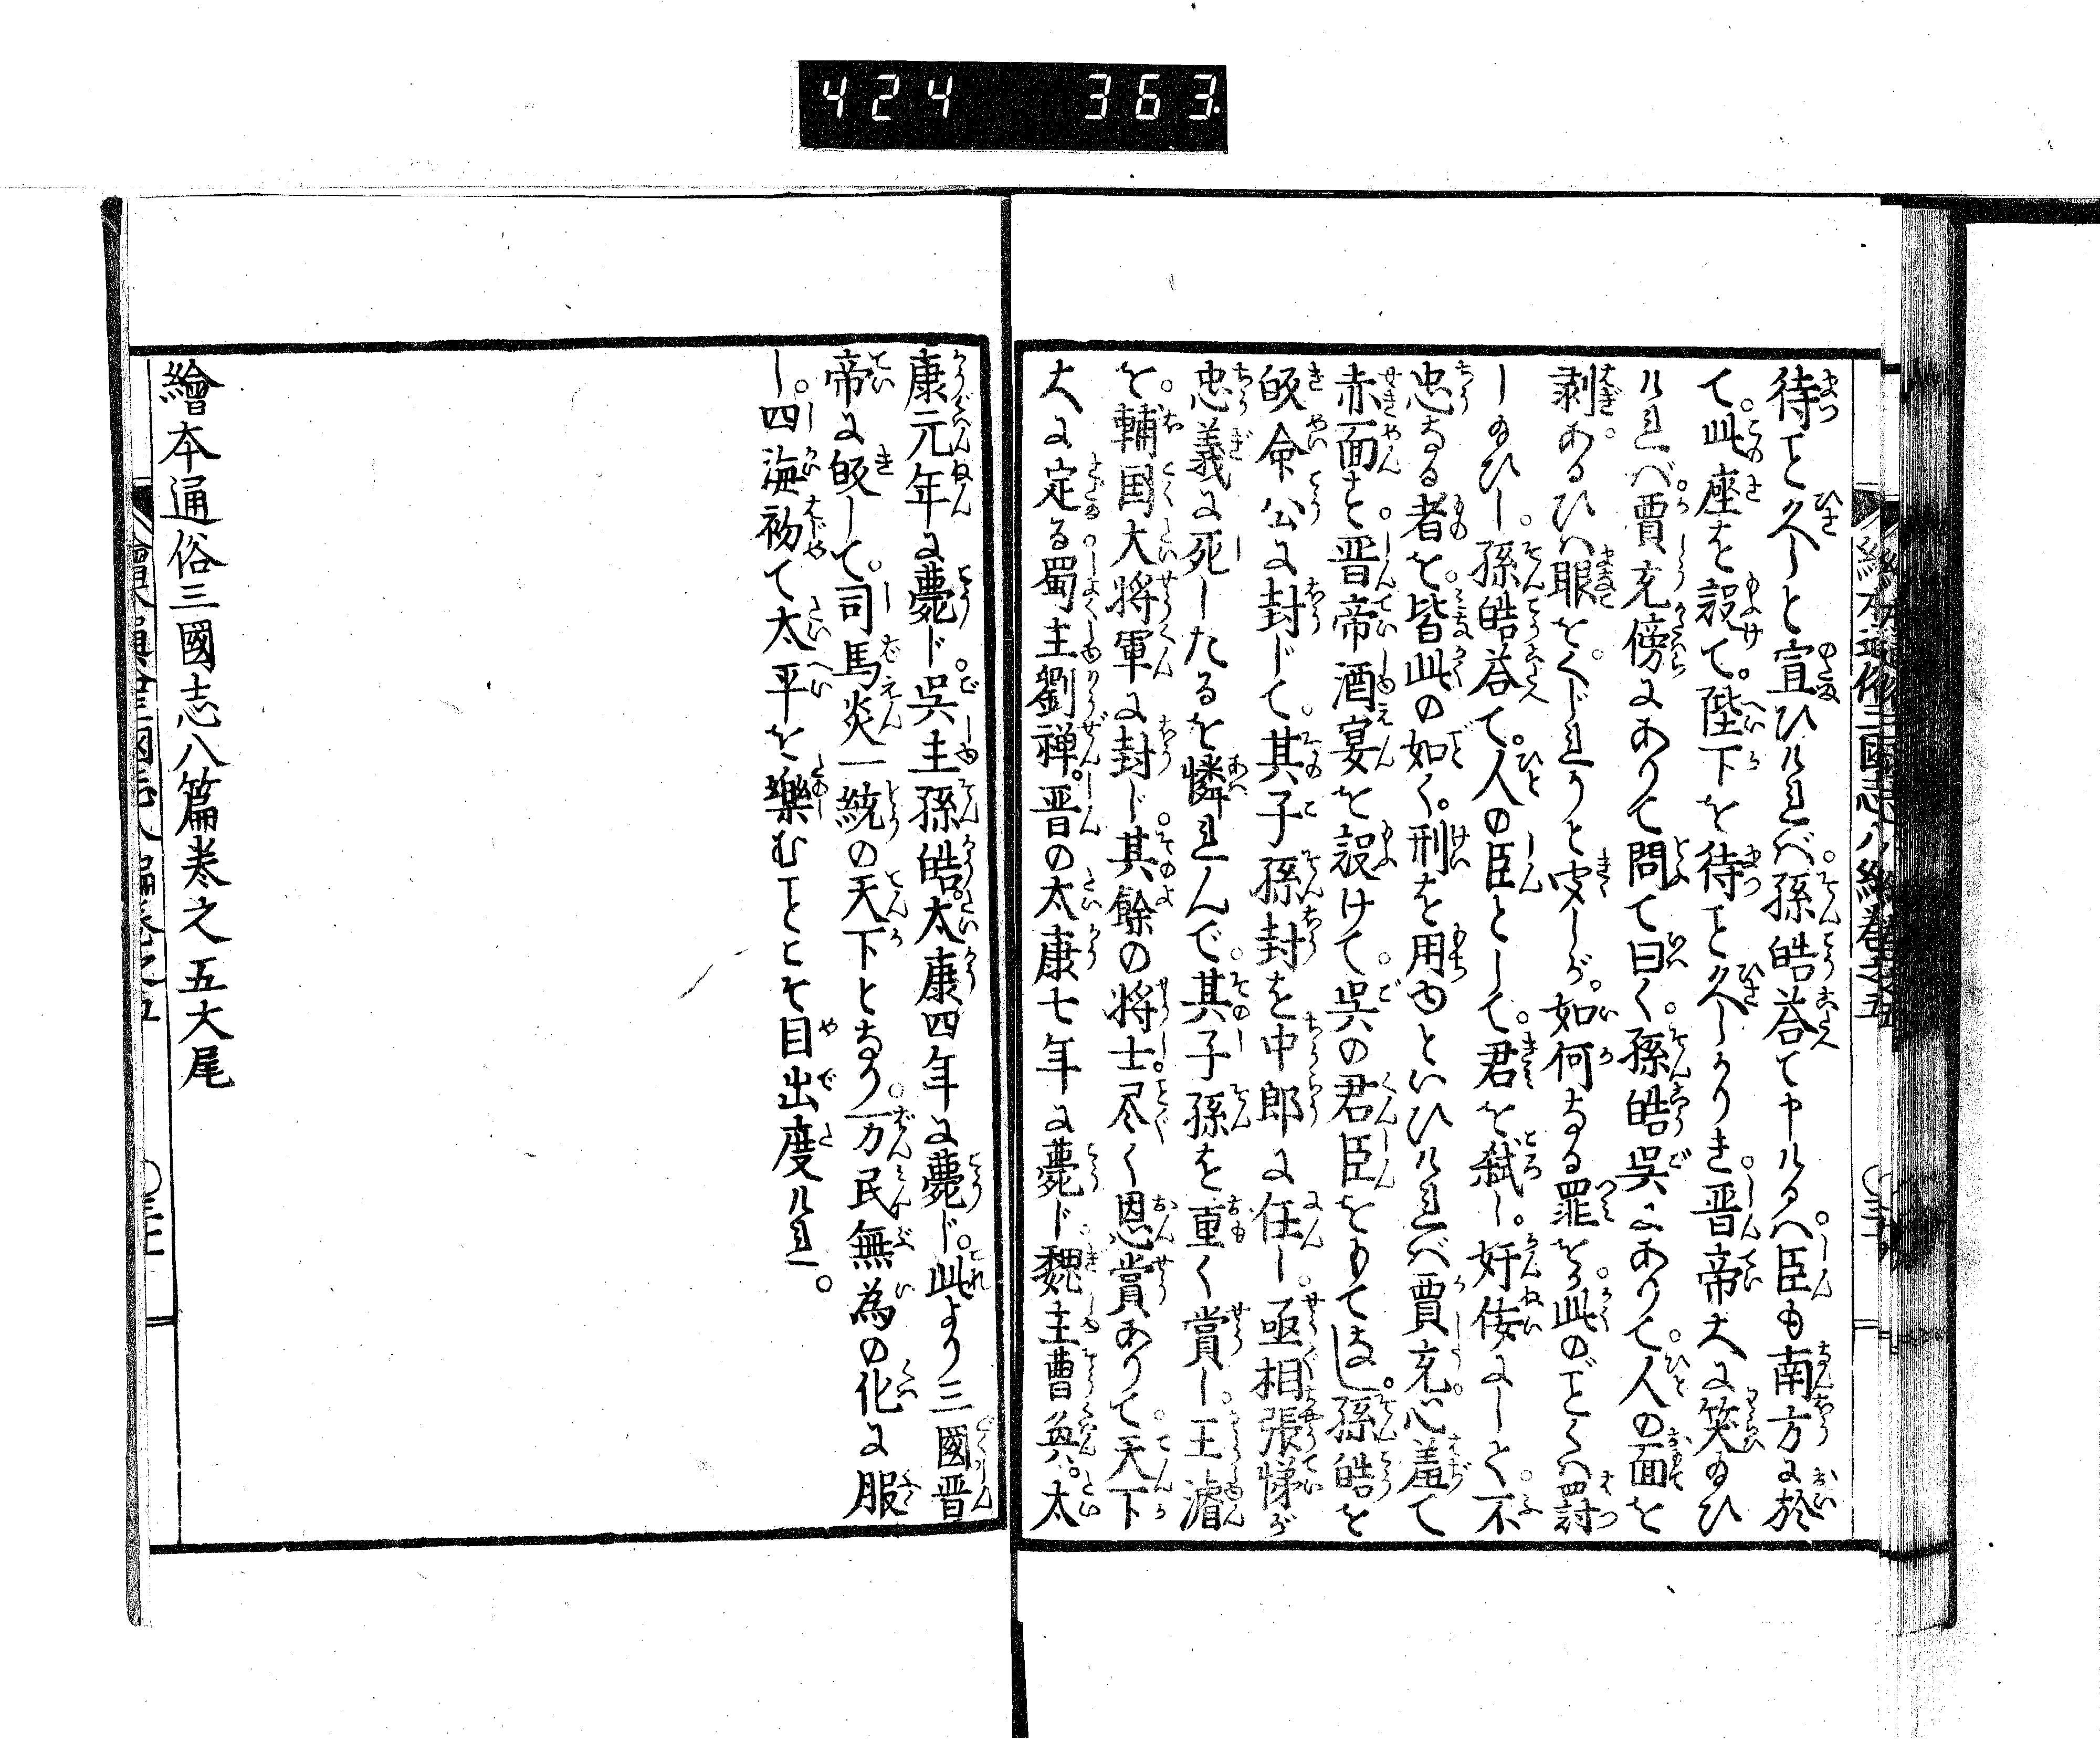 424 363
待ヿ久しと宣ひけれバ孫皓荅て申けるハ臣も南方に於
て。此座を設て。陛下を待ヿ久しかりき晋帝大に笑給ひ
けれバ。賈充傍にありて問て曰く。孫皓呉にありて。人の面を
剥。あるひハ眼を。くじれりと聞しが。如何なる罪をか。此のごとくハ罸
し給ひし。孫皓荅て。人の臣として。君を弑し。奸佞にして。不
忠なる者を。皆此の如く。刑を用ゆといひけれバ賈充。心羞て
赤面す。晋帝酒宴を設けて。呉の君臣をもてなし。孫皓を
皈命公に封じて。其子孫封を中郎に任し。丞相張悌が
忠義に死したるを憐れんで。其子孫を重く賞し。王濬
を。輔国大将軍に封じ。其餘の将士。尽く恩賞ありて。天下
大に定る。蜀主劉禅。晋の太康七年に薨ド。魏主曹奐。太
康元年に薨ド。呉主孫皓。太康四年に薨ド。此より三國晋
帝に皈して。司馬炎一統の天下となり。万民無為の化に服
し。四海初て太平を樂むヿこそ目出度けれ。
繪本通俗三國志八篇巻之五大尾